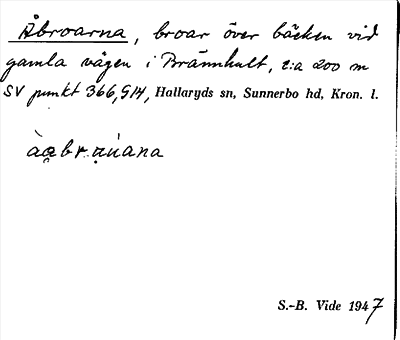 Åbroarna, broar över bäcken vid
gamla vägen i Brännhult, c:a 200 m
SV punkt 366,914, Hallaryds sn, Sunnerbo hd, Kron. l.
S.-B. Vide 1947